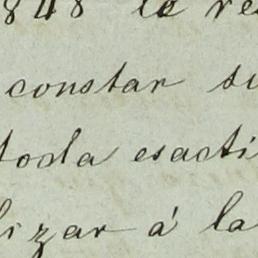 848 le re
constar su
toda esacti
lizar á la